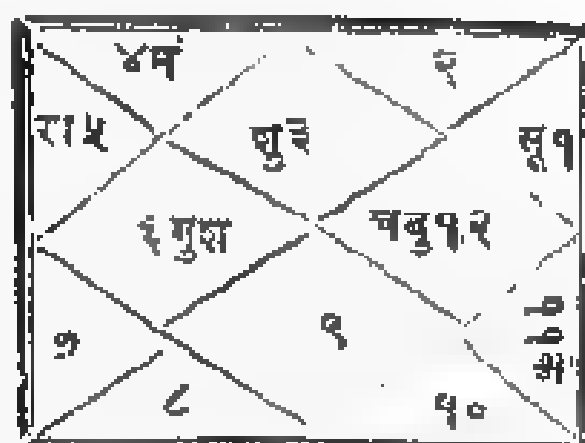 ४मं
२
रा५
शु३
सू१
६गुश
चबु१२
९
के११
७
८
१०